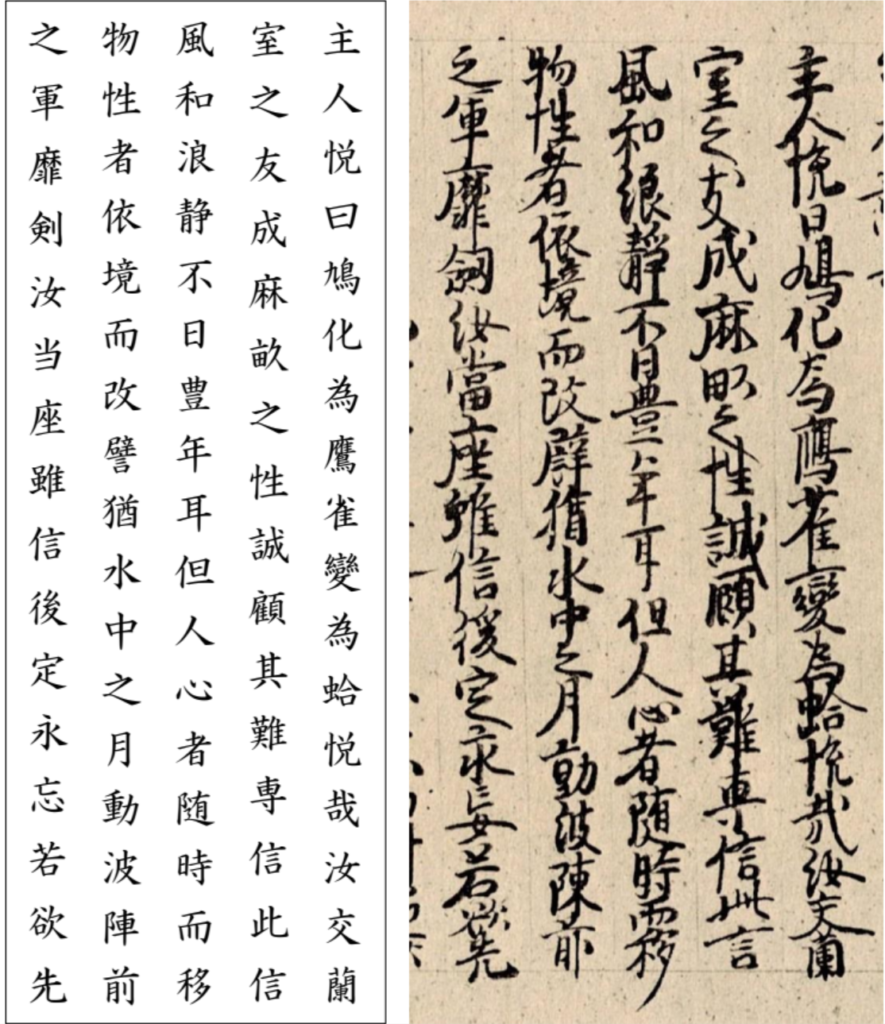 主人悦曰鳩化為鷹雀變為蛤悦哉汝交蘭
室之友成麻畝之性誠顧其難専信此言
風和浪靜不日豊年耳但人心者随時而移
物性者依境而改譬猶水中之月動波陳前
之軍靡釼汝當座雖信後定永忘若欲先
主人悦曰鳩化為鷹雀變為蛤悦哉汝交蘭
室之友成麻畝之性誠顧其難専信此信
風和浪静不日豊年耳但人心者随時而移
物性者依境而改譬猶水中之月動波陣前
之軍靡剣汝当座雖信後定永忘若欲先